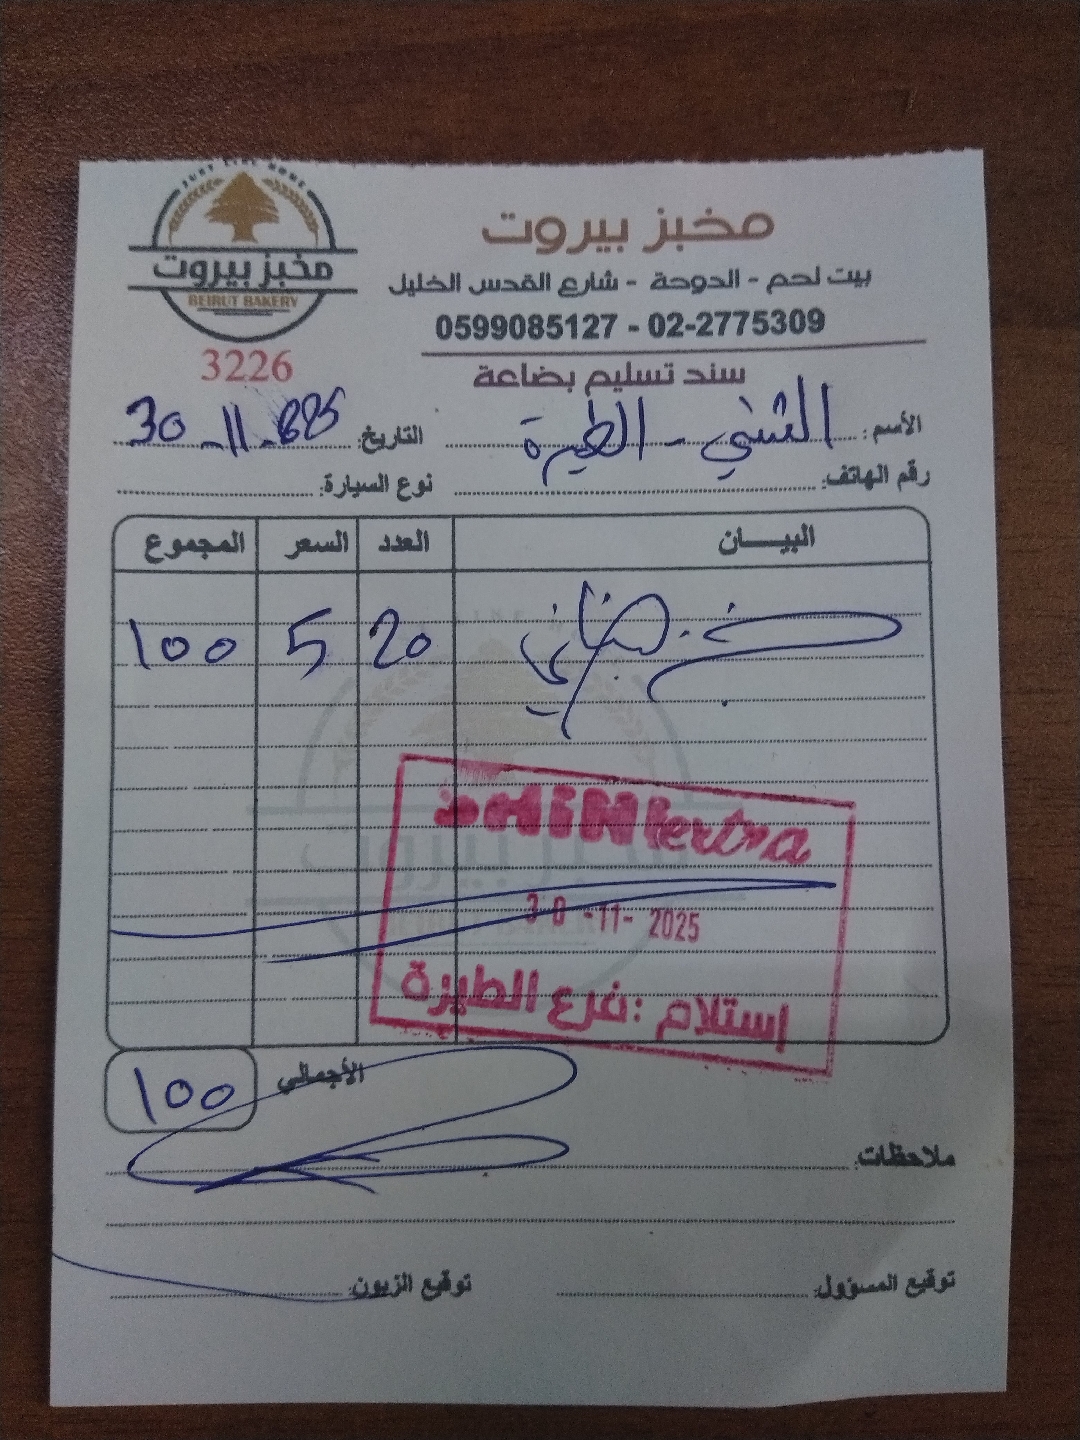 JUST LIKE HOME
مخبز بيروت
BEIRUT BAKERY
3226
مخبز بيروت
بيت لحم - الدوحة - شارع القدس الخليل
0599085127 - 02-2775309
سند تسليم بضاعة
الأسم: الشني - الطيرة
التاريخ: 30-11-
رقم الهاتف:
نوع السيارة:
البيـــان العدد السعر المجموع
20 5 100
extra
30 -11- 2025
إستلام : فرع الطيرة
الأجمالي 100
ملاحظات:
توقيع المسؤول:
توقيع الزبون: